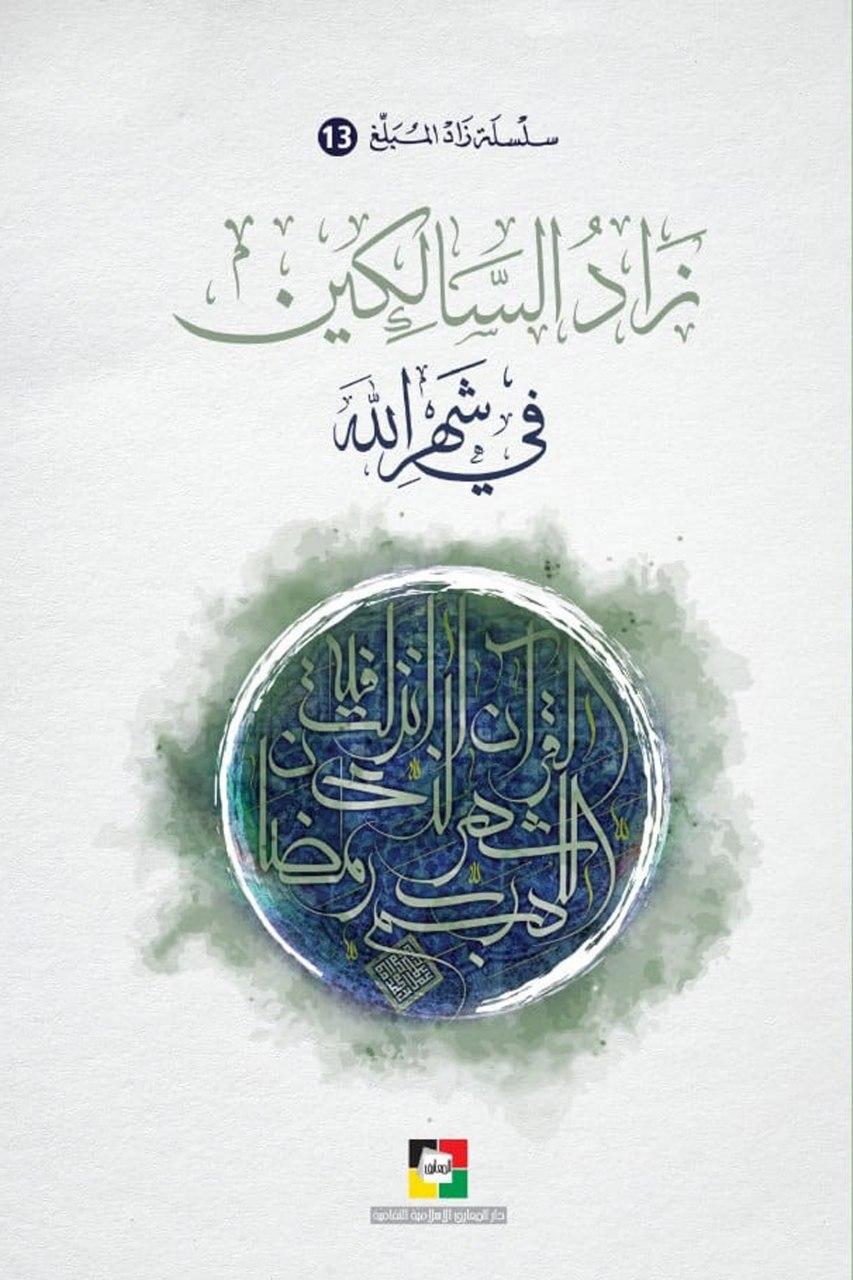 سلسلة زاد المبلّغ 13
زَادُ السَّالِكِين
فِي شَهْرِ اللّٰه
القرآن
أنزل فيه
الذي
شهر
رمضان
المعارف
دار المعارف الإسلامية الثقافية